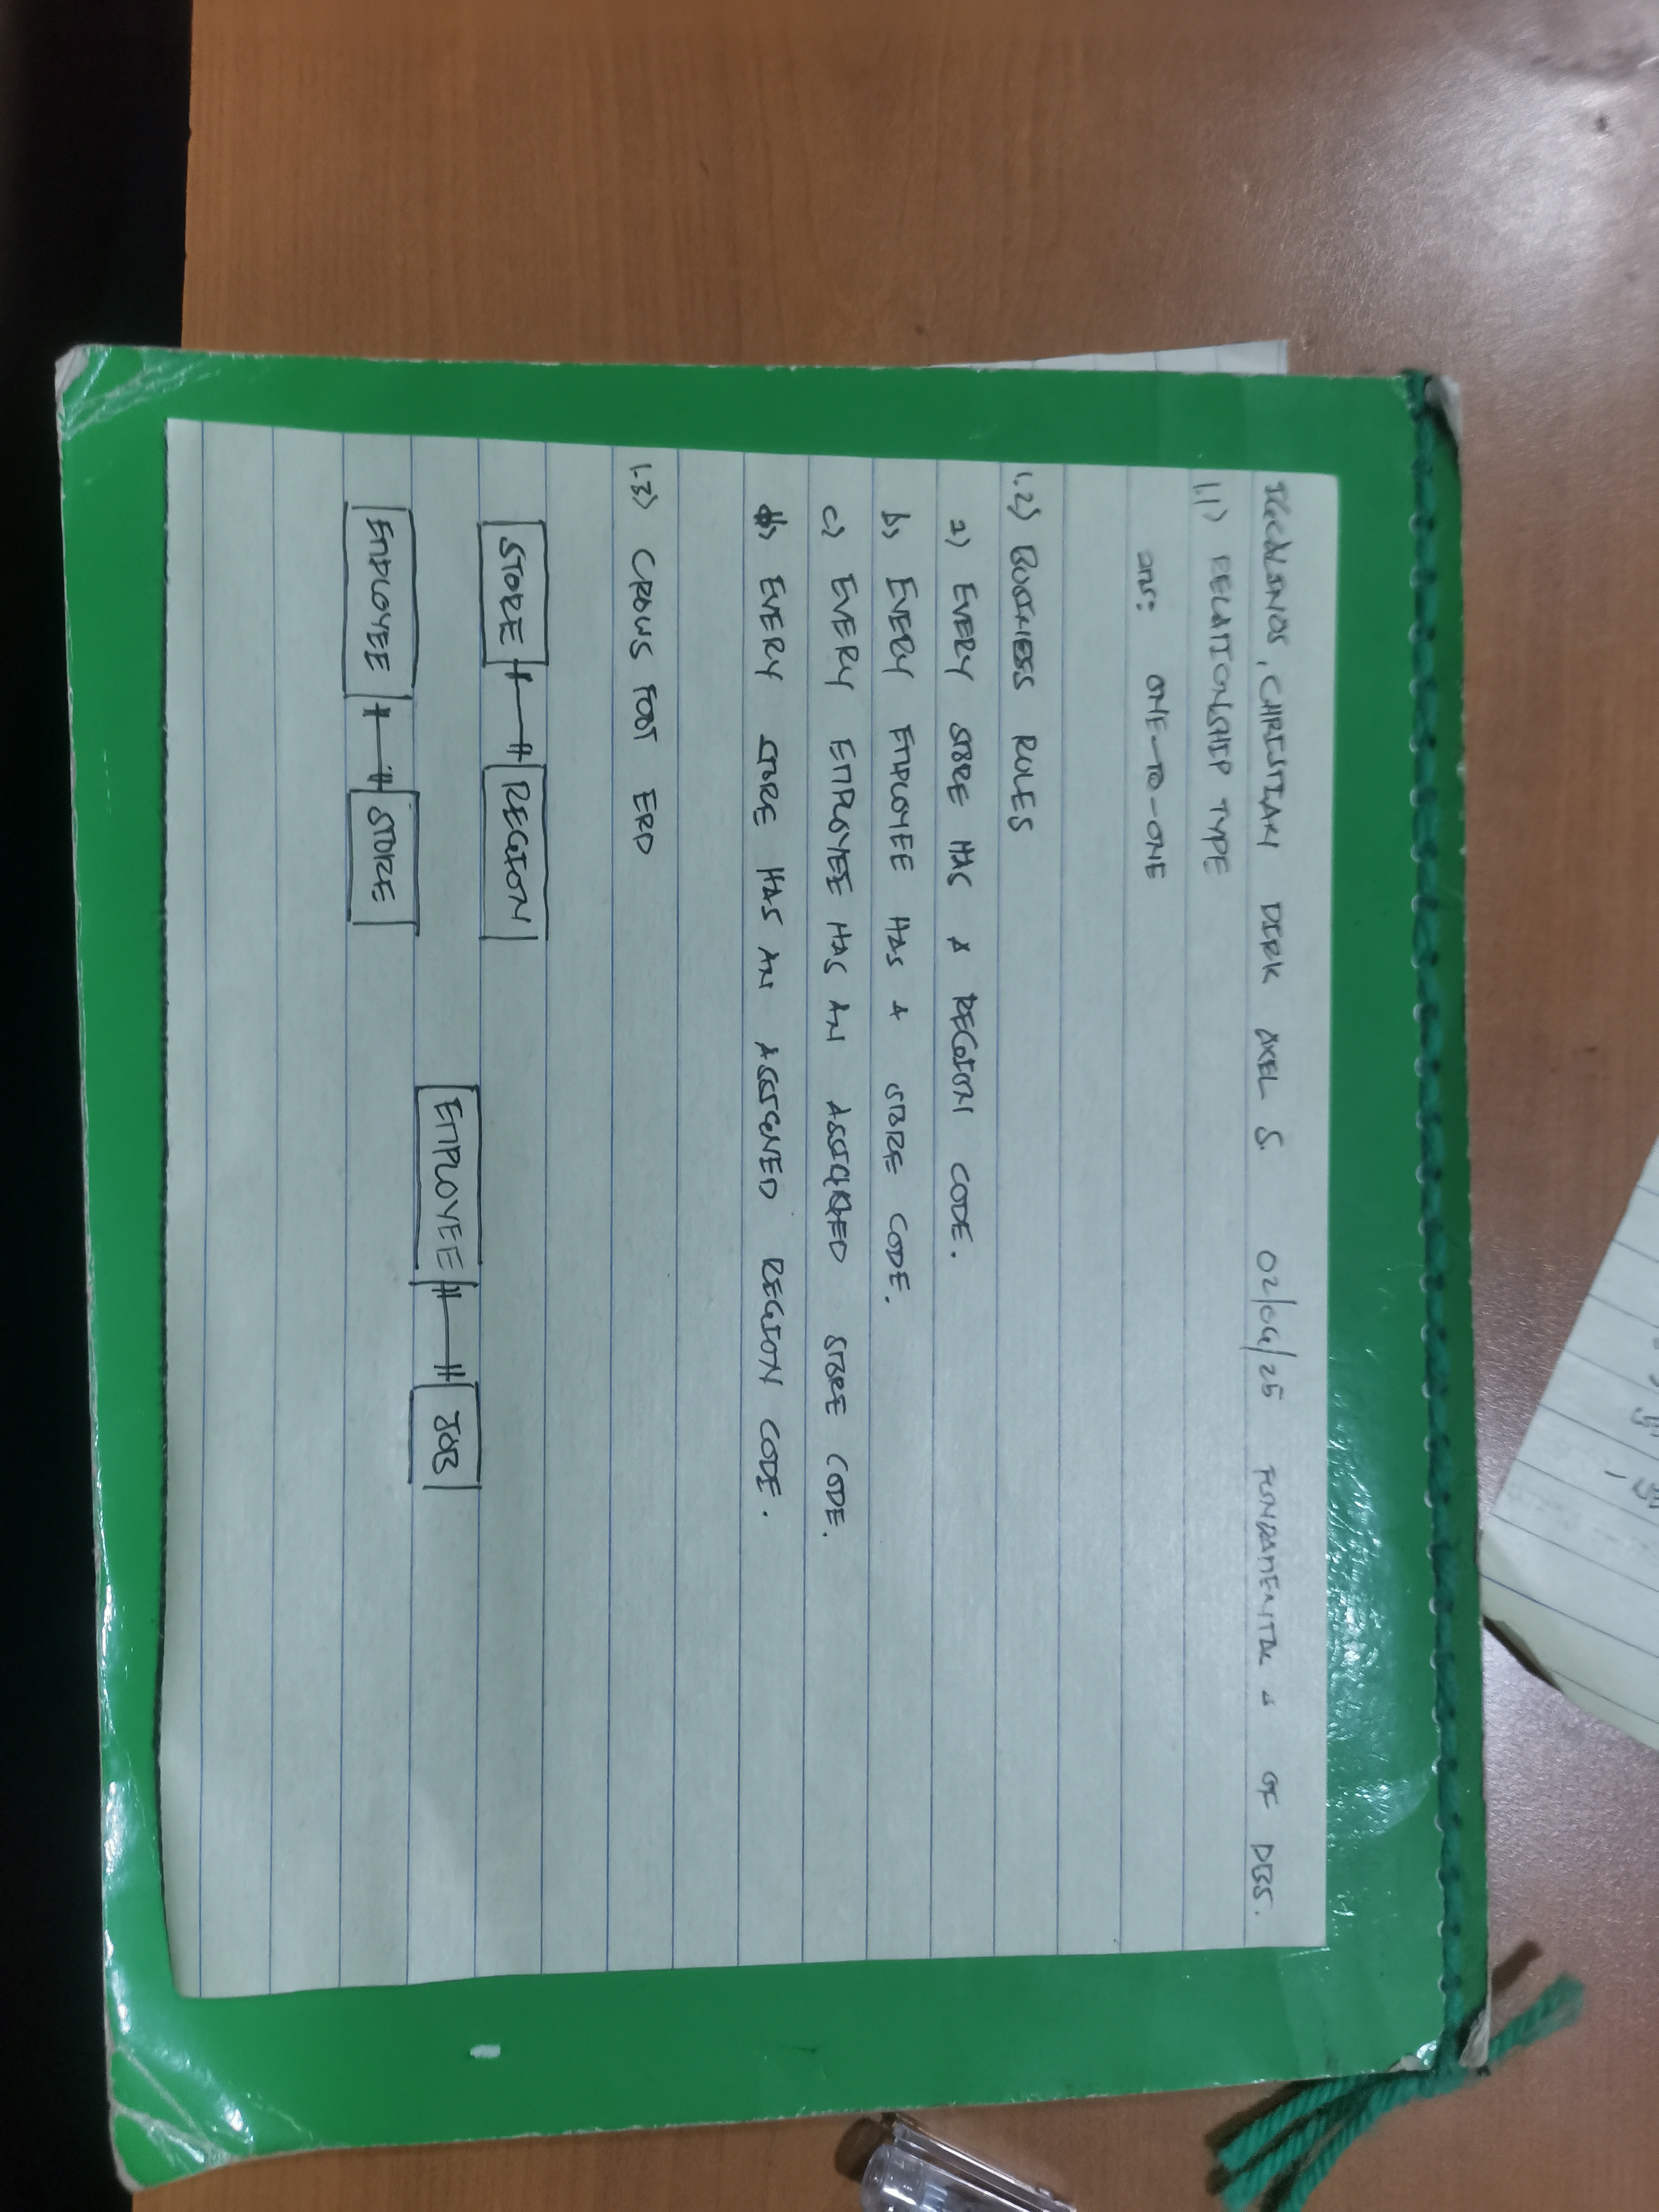 CHRISTIAN DIRK AXEL S. 02/04/25 FUNDAMENTAL OF DBS.
1.1) RELATIONSHIP TYPE
ans: ONE-TO-ONE
1.2) BUSINESS RULES
a) EVERY STORE HAS A REGION CODE.
b) EVERY EMPLOYEE HAS A STORE CODE.
c) EVERY EMPLOYEE HAS AN ASSIGNED STORE CODE.
EVERY STORE HAS AN ASSIGNED REGION CODE.
1.3) CROWS FOOT ERD
STORE REGION
EMPLOYEE JOB
EMPLOYEE STORE